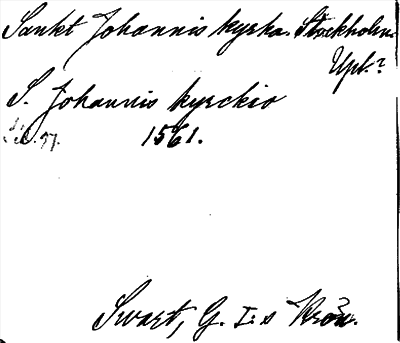 Sankt Johannis kyrka. Stockholm.
Upl.?
S. Johannis kyrckio
1561.
s. 97.
Svart, G. I:s Krön.